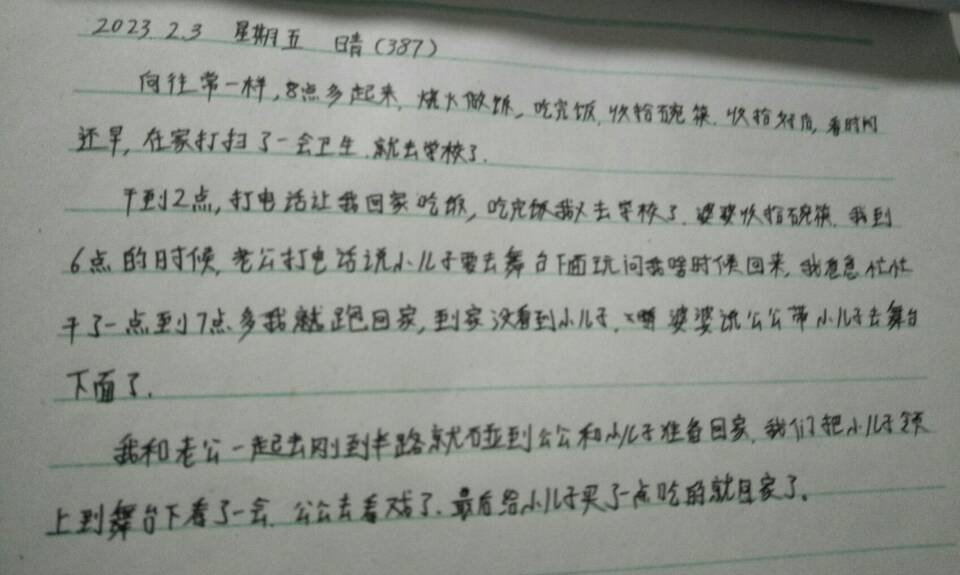 2023.2.3 星期五 晴(387)
向往常一样,8点多起来,烧火做饭,吃完饭,收拾碗筷,收拾好后,看时间
还早,在家打扫了一会卫生,就去学校了.
干到2点,打电话让我回家吃饭,吃完饭我又去学校了.婆婆收拾碗筷.我到
6点的时候,老公打电话说小儿子要去舞台下面玩问我啥时候回来,我急急忙忙
干了一点到7点多我就跑回家,到家没看到小儿子,婆婆说公公带小儿子去舞台
下面了.
我和老公一起去刚到半路就碰到公公和小儿子准备回家,我们把小儿子领
上到舞台下看了一会.公公去看戏了.最后给小儿子买了一点吃的就回家了。